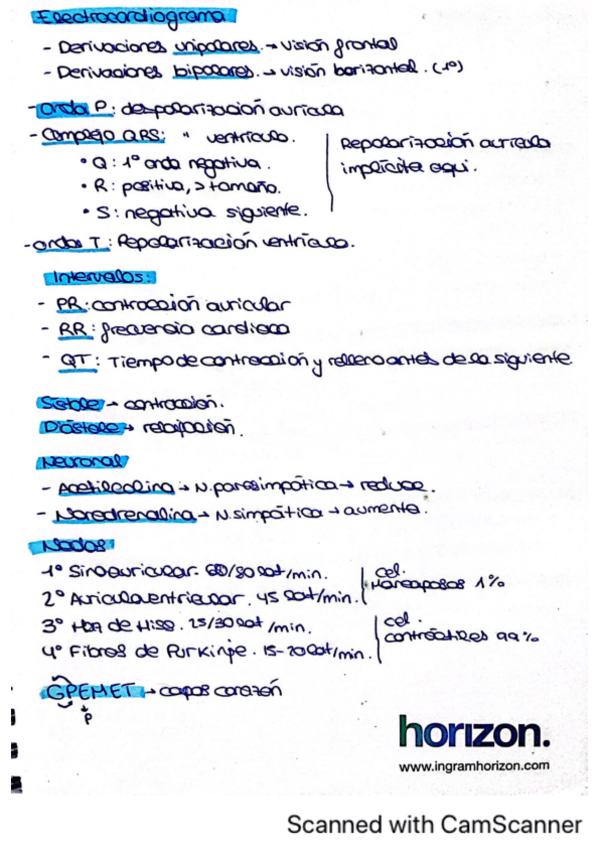 Electrocardiograma
- Derivaciones unipolares. → visión frontal
- Derivaciones bipolares. → visión horizontal. (1º)
- onda P: despolarización aurícula
- Complejo QRS: " ventrículo.
• Q: 1º onda negativa.
• R: positiva, > tamaño.
• S: negativa siguiente.
Repolarización aurícula
implícita aquí.
- onda T: Repolarización ventrículo.
Intervalos:
- PR: contracción auricular
- RR: frecuencia cardiaca
- QT: Tiempo de contracción y relleno antes de la siguiente
Sístole → contracción.
Diástole → relajación.
Neuronal
- Acetilcolina → N. parasimpática → reduce.
- Noradrenalina → N. simpática → aumenta.
Nodos
1º Sinoauricular. 60/80 lat/min.
2º Auriculoventricular. 45 lat/min.
cel.
Marcapasos 1%
3º Haz de Hiss. 25/30 lat /min.
4º Fibras de Purkinje. 15-20 lat/min.
cel.
contráctiles 99%
GPEMET → capas corazón
P
horizon.
www.ingramhorizon.com
Scanned with CamScanner